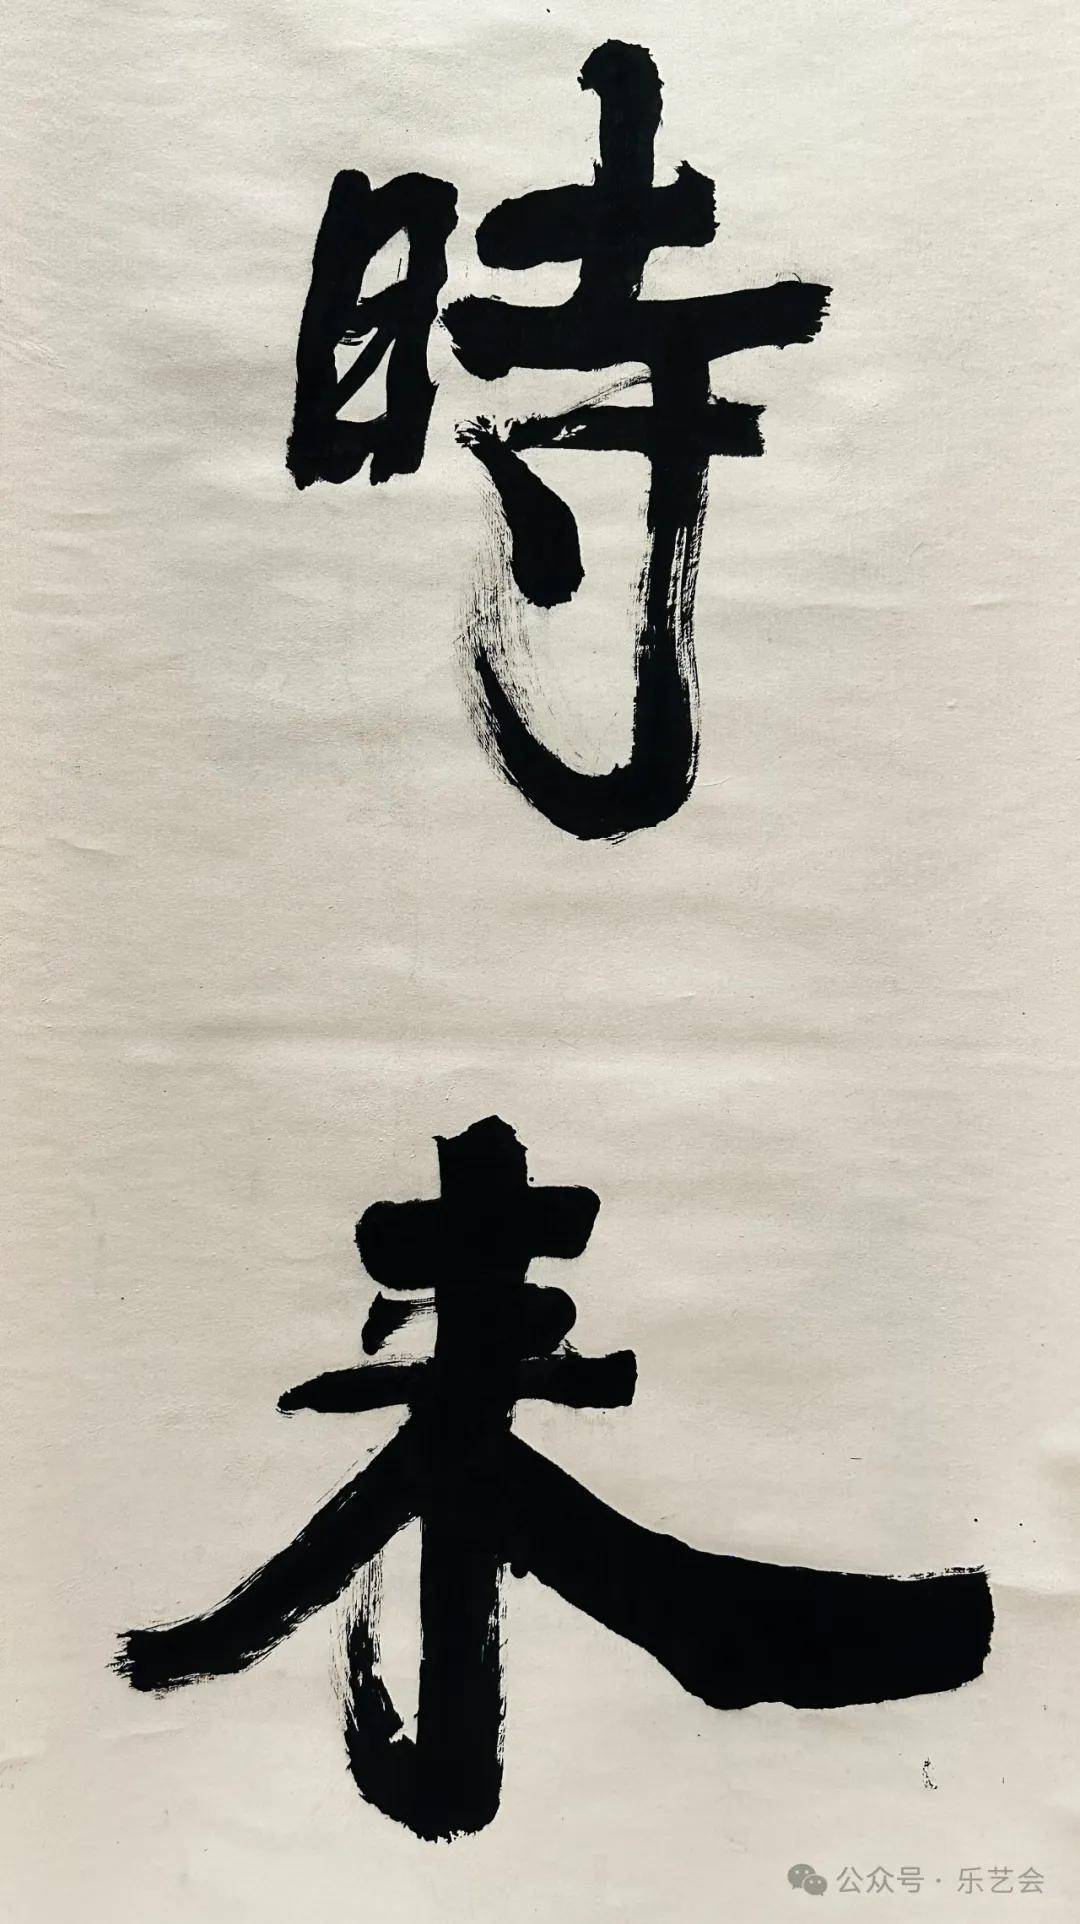 時
来
公众号·乐艺会